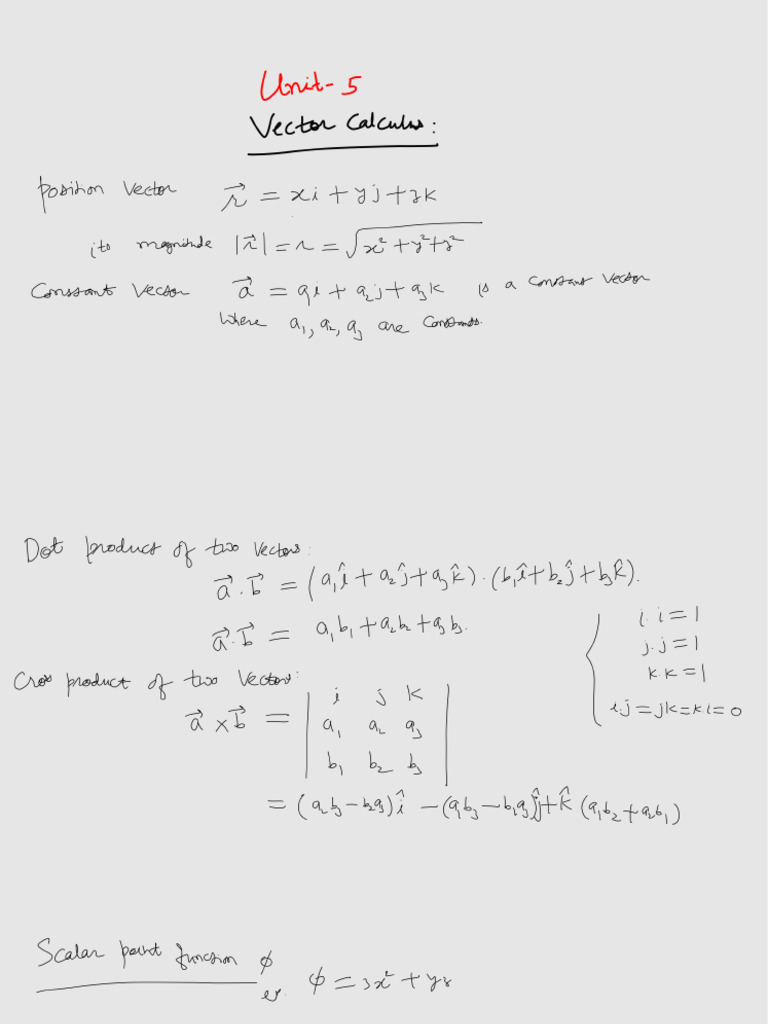 Unit-5
Vector Calculus:
Position Vector r⃗ = xi + yj + zk
its magnitude |r⃗| = r = √(x² + y² + z²)
Constant Vector a⃗ = a₁i + a₂j + a₃k is a constant vector
where a₁, a₂, a₃ are constants.
Dot product of two vectors:
a⃗ . b⃗ = (a₁î + a₂ĵ + a₃k̂) . (b₁î + b₂ĵ + b₃k̂).
a⃗ . b⃗ = a₁b₁ + a₂b₂ + a₃b₃.
i . i = 1
j . j = 1
k . k = 1
i.j = jk = ki = 0
Cross product of two vectors:
a⃗ × b⃗ = | i j k |
| a₁ a₂ a₃ |
| b₁ b₂ b₃ |
= (a₂b₃ − b₂a₃)î − (a₁b₃ − b₁a₃)ĵ + k̂ (a₁b₂ + a₂b₁)
Scalar point function φ
ex. φ = 3x² + yz